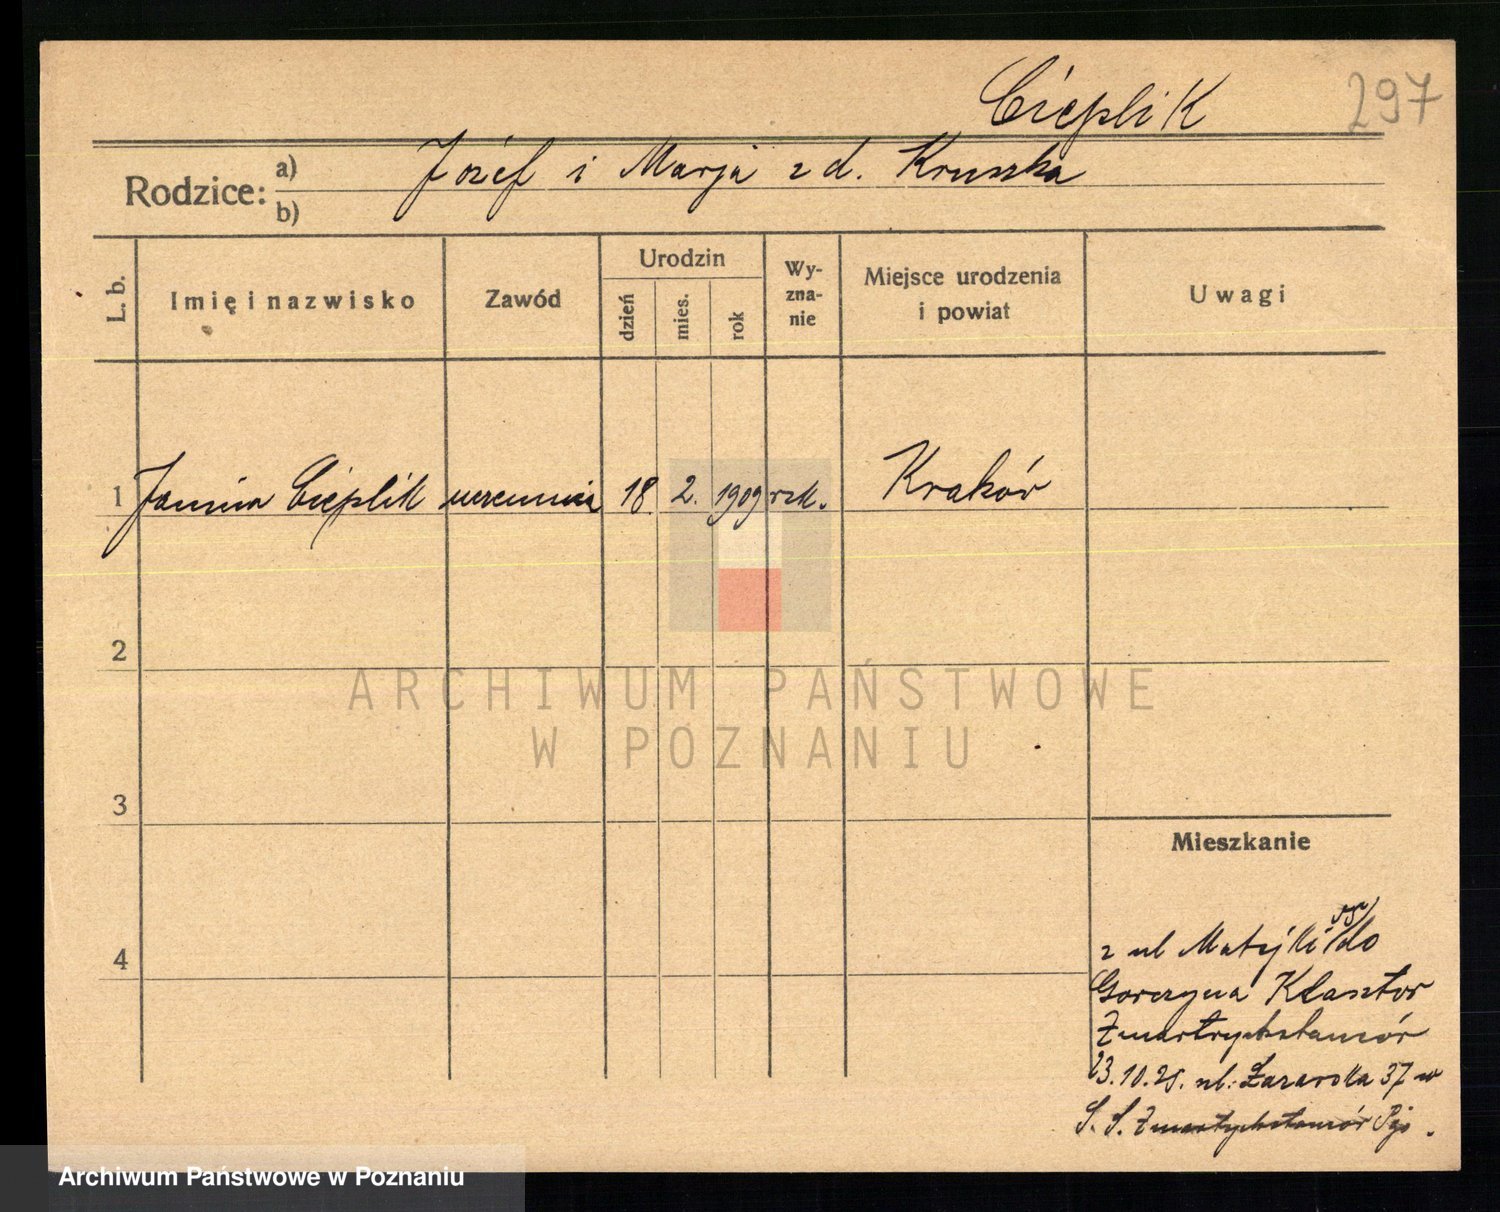 Cieplik 297
Józef i Marja z d. Kruszka
Rodzice: a)
b)
L. b. Imię i nazwisko Zawód Urodzin dzień mies. rok Wy-zna-nie Miejsce urodzenia i powiat Uwagi
1 Janina Cieplik uczennica 18. 2. 1909 rzk. Kraków
2
ARCHIWUM PAŃSTWOWE
W POZNANIU
3
Mieszkanie
4
z ul Matejki do
Gorczyna Klasztor
Zmartwychstanców
23.10.25. ul. Łazarska 37 w
S. S. Zmartwychstanców
Archiwum Państwowe w Poznaniu